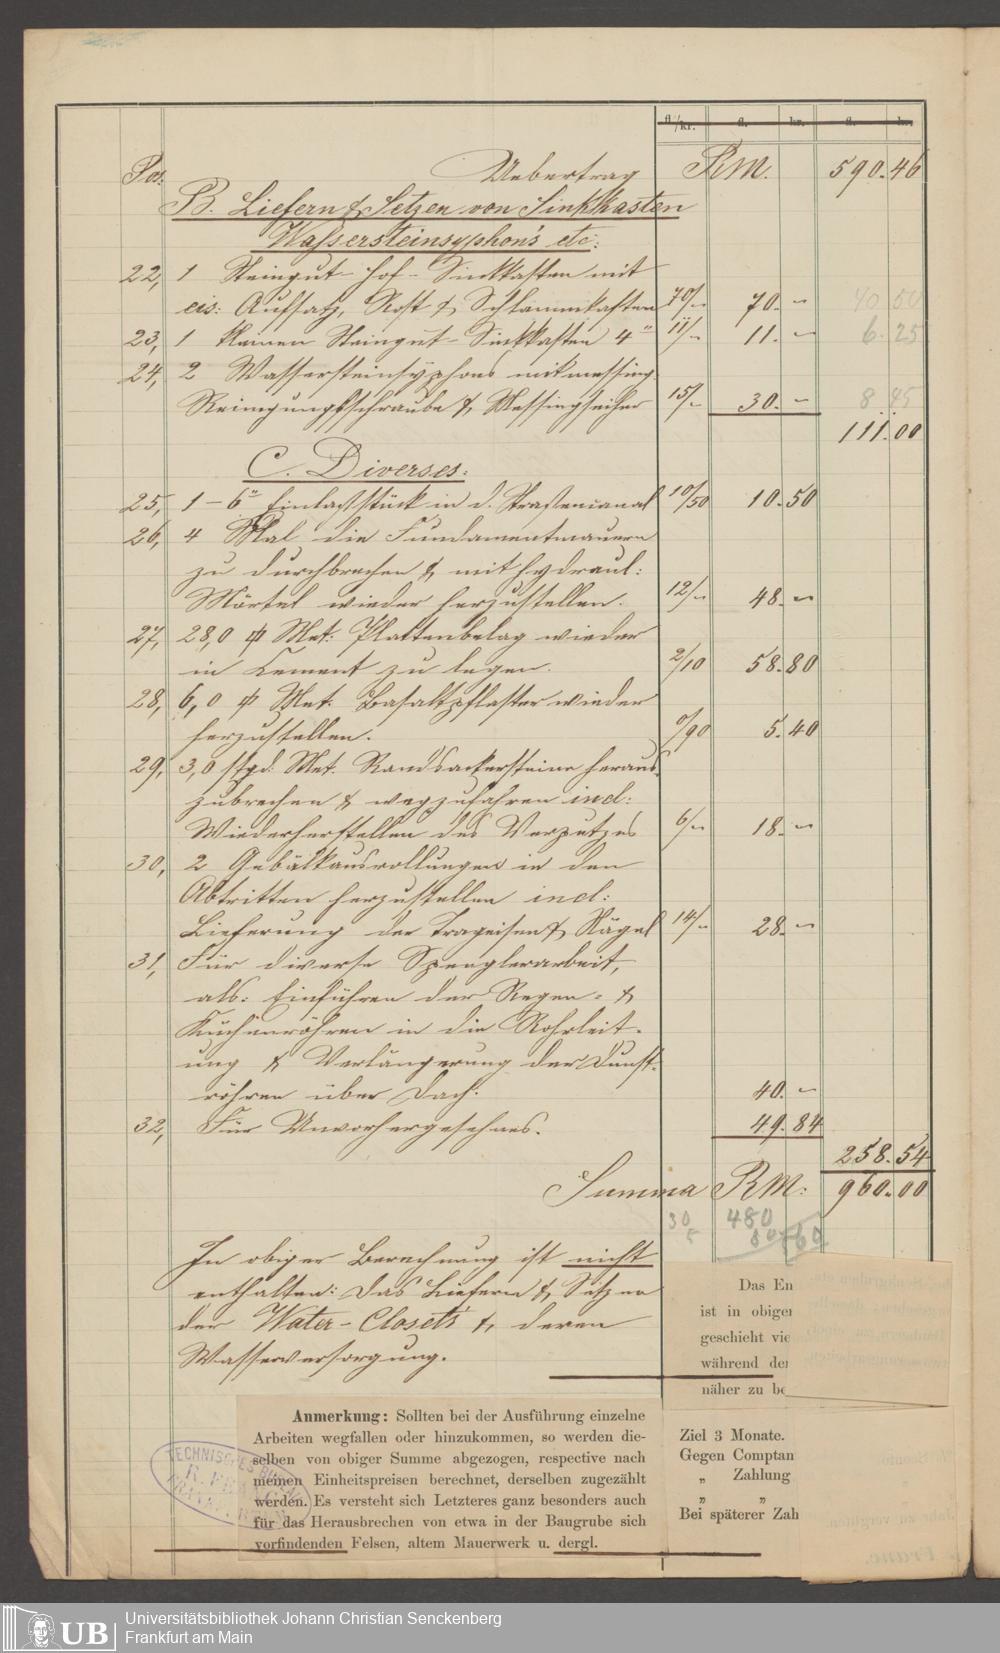 fl/kr. fl. kr. fl. kr.
Pos: Uebertrag RM. 590.46
B. Liefern & Setzen von Sinkkasten
Wassersteinsyphon's etc:
22, 1 Steingut-Hof-Sinkkasten mit
eis: Aufsatz, Rost & Schlammkasten 70/- 70.- 40 50
23, 1 kleinen Steingut-Sinkkasten 4" 11/- 11.- 6.25
24, 2 Wassersteinsyphons mit messing
Reinigungsschraube & Messingseiher 15/- 30.- 8 45
111.00
C. Diverses:
25, 1 - 6" Einlaßstück in d. Straßencanal 10/50 10.50
26, 4 Mal die Fundamentmauern
zu durchbrechen & mit hydraul:
Mörtel wieder herzustellen. 12/- 48.-
27, 28,0 Met: Plattenbelag wieder
in Cement zu legen. 2/10 58.80
28, 6,0 Met: Basaltpflaster wieder
herzustellen. 0/90 5.40
29, 3,0 stgd: Met. Randsackersteine heraus-
zubrechen & wegzufahren incl:
Wiederherstellen des Verputzes 6/- 18.-
30, 2 Gebälkausrollungen in den
Abtritten herzustellen incl:
Lieferung der Trageisen & Nägel 14/- 28.-
31, Für diverse Spenglerarbeit,
als: Einführen der Regen- &
Küchenröhren in die Rohrleit-
ung & Verlängerung der Dunst-
röhren über Dach: 40.-
32, Für Unvorhergesehnes. 49.84
258.54
Summa RM: 960.00
30 480
In obiger Berechnung ist nicht
enthalten: Das Liefern & Setzen
der Water-Closets & deren
Wasserversorgung.
Das En
ist in obiger
geschieht vie
während der
näher zu be
Anmerkung: Sollten bei der Ausführung einzelne
Arbeiten wegfallen oder hinzukommen, so werden die-
selben von obiger Summe abgezogen, respective nach
meinen Einheitspreisen berechnet, derselben zugezählt
werden. Es versteht sich Letzteres ganz besonders auch
für das Herausbrechen von etwa in der Baugrube sich
vorfindenden Felsen, altem Mauerwerk u. dergl.
Ziel 3 Monate.
Gegen Comptan
„ Zahlung
„ „
Bei späterer Zah
TECHNISCHES BUREAU
UB
Universitätsbibliothek Johann Christian Senckenberg
Frankfurt am Main